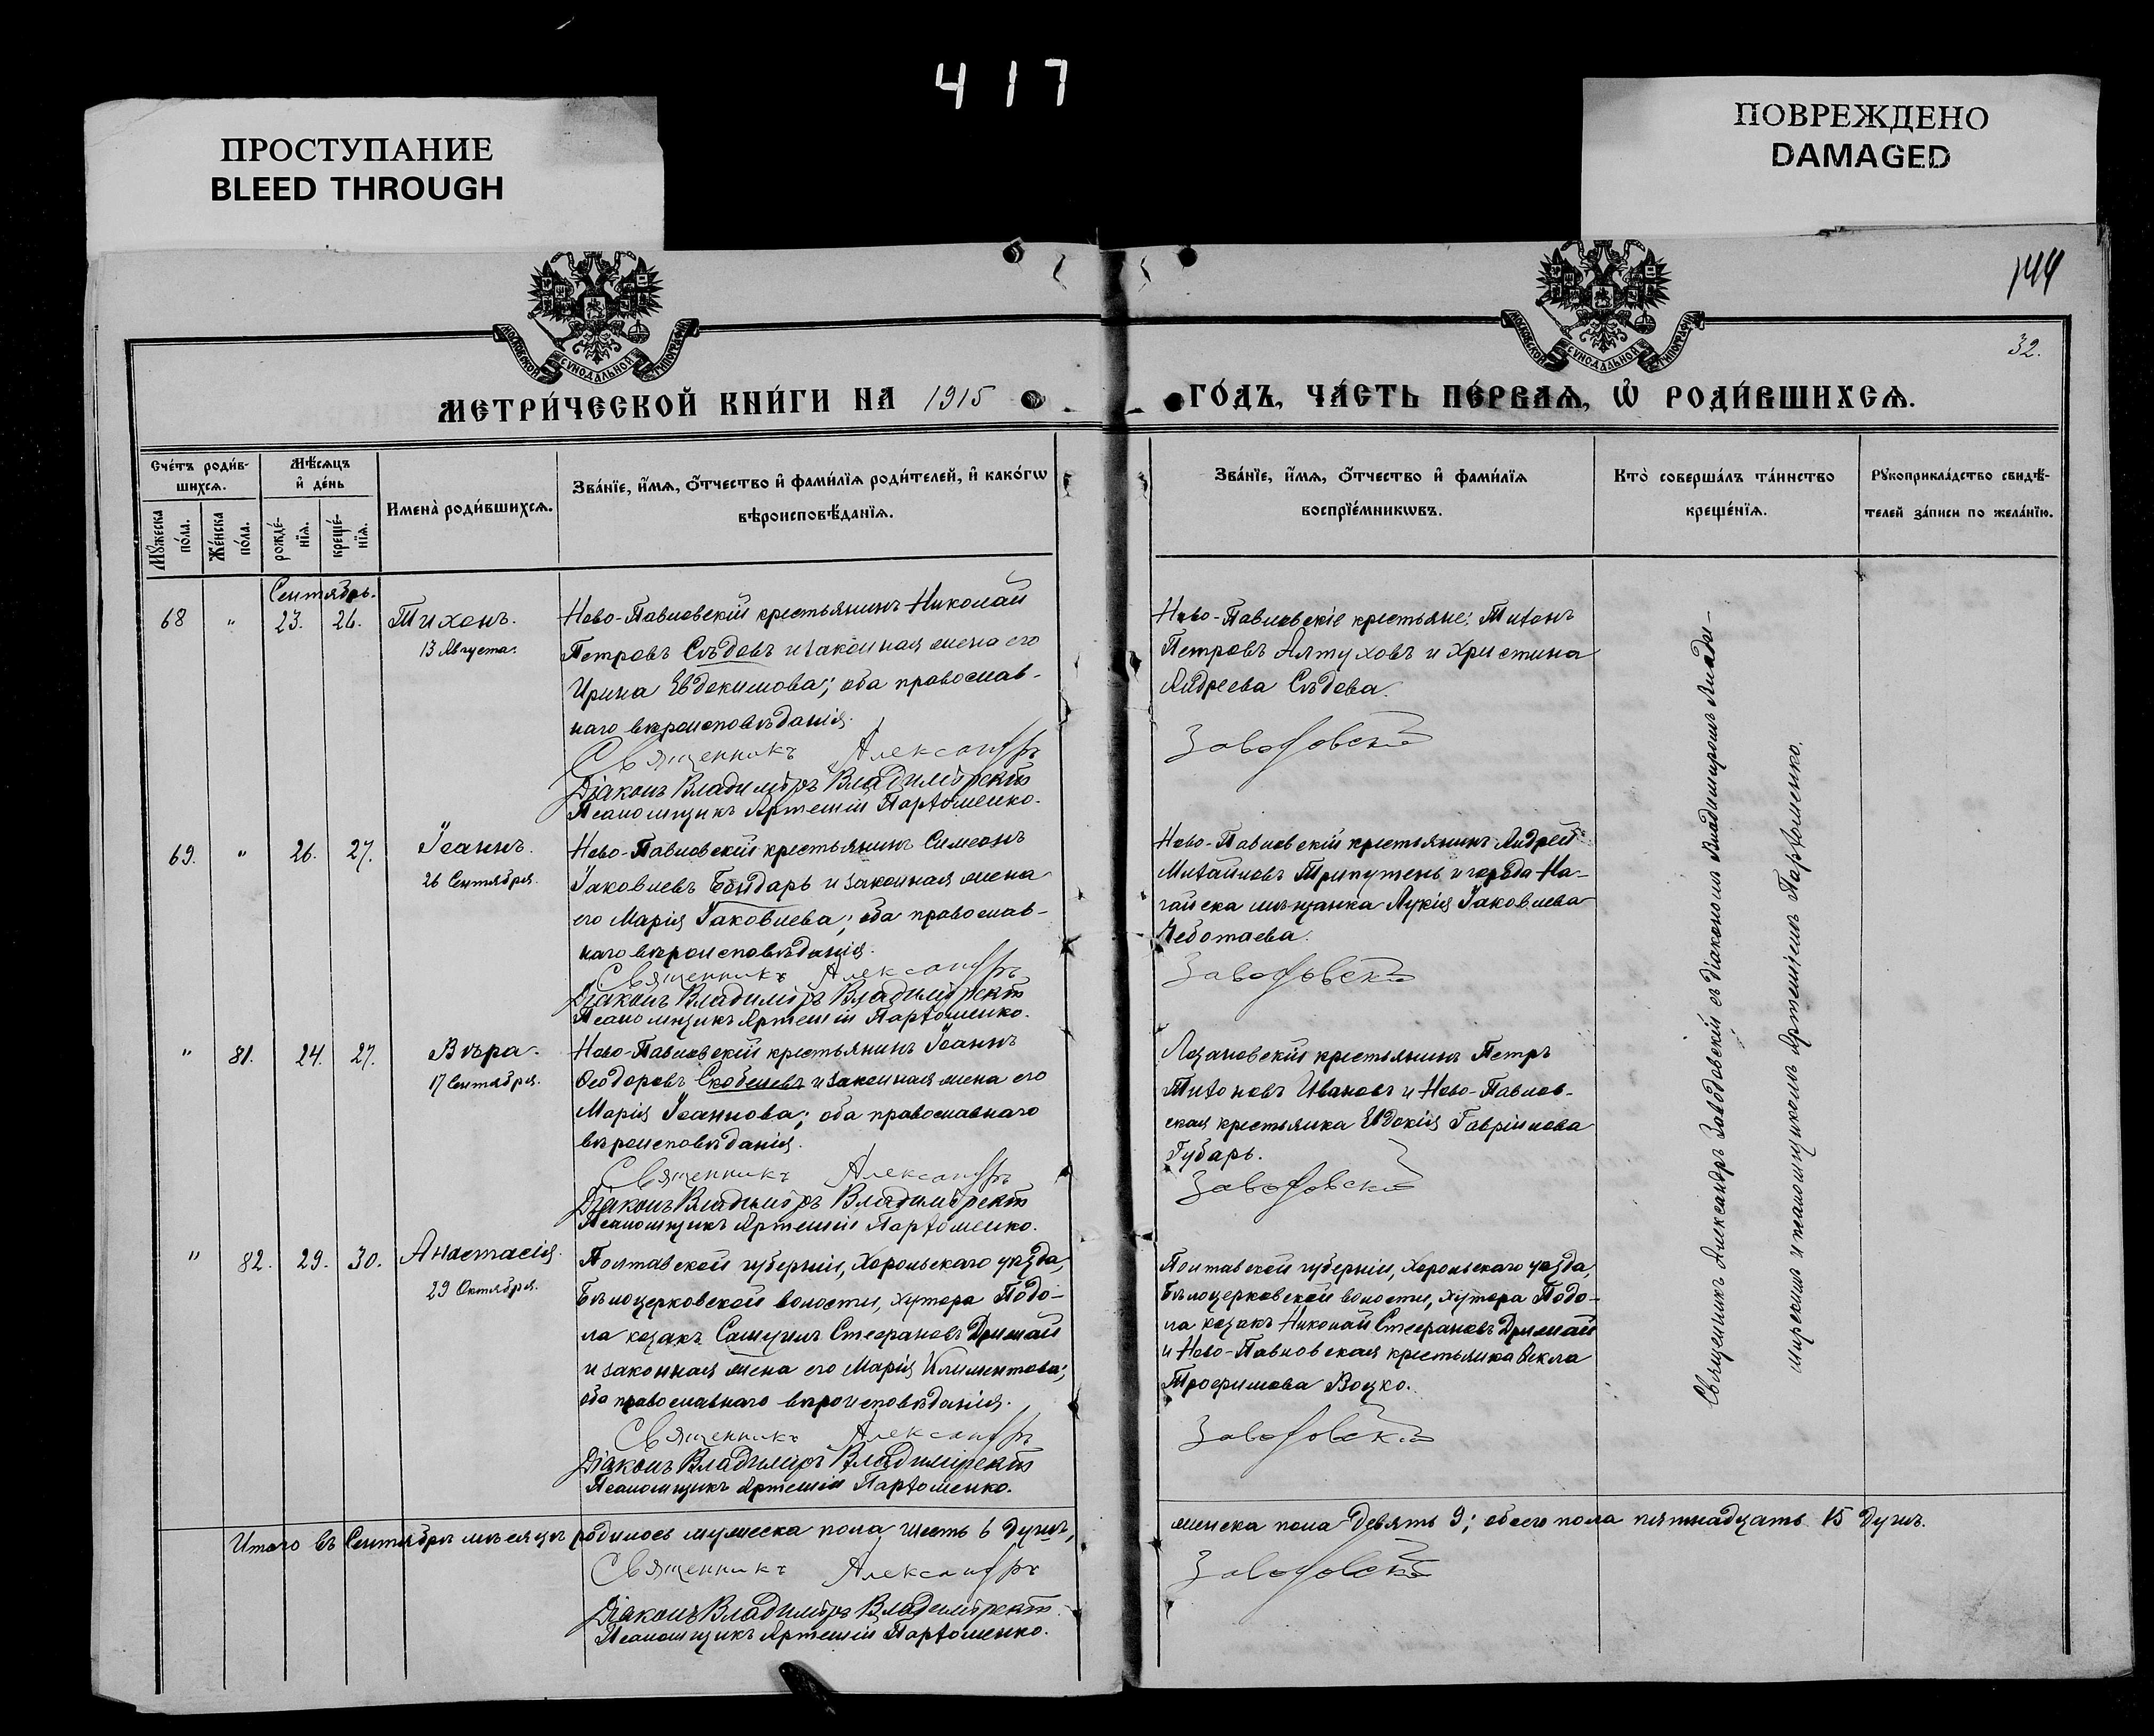 417
ПРОСТУПАНИЕ
BLEED THROUGH
ПОВРЕЖДЕНО
DAMAGED
144
32.
МОСКОВСКОЙ СѴНОДАЛЬНОЙ ТИПОГРАФІИ
МОСКОВСКОЙ СѴНОДАЛЬНОЙ ТИПОГРАФІИ
МЕТРИ́ЧЕСКОЙ КНИ́ГИ НА 1915
ГО́ДЪ, ЧА́СТЬ ПЕ́РВАѦ, Ѽ РОДИ́ВШИХСѦ.
Сче́тъ роди́в-
шихсѧ.
Мꙋ́жеска
по́ла.
Же́нска
по́ла.
Мѣ́сѧцъ
и҆ де́нь
рожде́-
нїѧ.
креще́-
нїѧ.
Имена̀ роди́вшихсѧ.
Зва́нїе, и҆́мѧ, ѻ҆́тчество и҆ фами́лїѧ роди́телей, и҆ како́гѡ
вѣроисповѣ́данїѧ.
Зва́нїе, и҆́мѧ, ѻ҆́тчество и҆ фами́лїѧ
воспрїе́мникѡвъ.
Кто̀ соверша́лъ та́инство
креще́нїѧ.
Рꙋкоприкла́дство свидѣ́-
телей за́писи по жела́нїю.
Сентябрь.
68 " 23. 26. Тихонъ.
13 Августа.
Ново-Павловскій крестьянинъ Николай
Петровъ Сѣдовъ и законная жена его
Ирина Евдокимова; оба православ-
наго вѣроисповѣданія.
Священникъ Александръ
Діаконъ Владиміръ Владимірскій
Псаломщикъ Артемій Парѳоменко.
Ново-Павловскіе крестьяне: Тиѳонъ
Петровъ Алтуховъ и Христина
Андреева Сѣдова.
Заводовскій
69. " 26. 27. Іоаннъ.
26 Сентября.
Ново-Павловскій крестьянинъ Симеонъ
Іаковлевъ Бондарь и законная жена
его Марія Іаковлева; оба православ-
наго вѣроисповѣданія.
Священникъ Александръ
Діаконъ Владиміръ Владимірскій
Псаломщикъ Артемій Парѳоменко.
Ново-Павловскій крестьянинъ Андрей
Михайловъ Трипутень и города Но-
гайска мѣщанка Лукія Іаковлева
Чеботаева.
Заводовскій
" 81. 24. 27. Вѣра.
17 Сентября.
Ново-Павловскій крестьянинъ Іоаннъ
Ѳеодоровъ Скобелевъ и законная жена его
Марія Іоаннова; оба православнаго
вѣроисповѣданія.
Священникъ Александръ
Діаконъ Владиміръ Владимірскій
Псаломщикъ Артемій Парѳоменко.
Лозановскій крестьянинъ Петръ
Тиѳоновъ Ивановъ и Ново-Павлов-
ская крестьянка Евдокія Гавріилова
Губарь.
Заводовскій
" 82. 29. 30. Анастасія.
29 Октября.
Полтавской губерніи, Хорольскаго уѣзда,
Бѣлоцерковской волости, хутора Подо-
ла козакъ Самуилъ Стефановъ Дрималъ
и законная жена его Марія Климентова;
оба православнаго вѣроисповѣданія.
Священникъ Александръ
Діаконъ Владиміръ Владимірскій
Псаломщикъ Артемій Парѳоменко.
Полтавской губерніи, Хорольскаго уѣзда,
Бѣлоцерковской волости, хутора Подо-
ла козакъ Николай Стефановъ Дрималъ
и Ново-Павловская крестьянка Ѳекла
Трофимова Воцко.
Заводовскій
Священникъ Александръ Заводовскій съ діакономъ Владиміромъ Влади-
мірскимъ и псаломщикомъ Артеміемъ Парѳоменко.
Итого въ Сентябрѣ мѣсяцѣ родилось мужеска пола шесть 6 душъ,
женска пола девять 9; обоего пола пятнадцать 15 душъ.
Священникъ Александръ
Заводовскій
Діаконъ Владиміръ Владимірскій.
Псаломщикъ Артемій Парѳоменко.